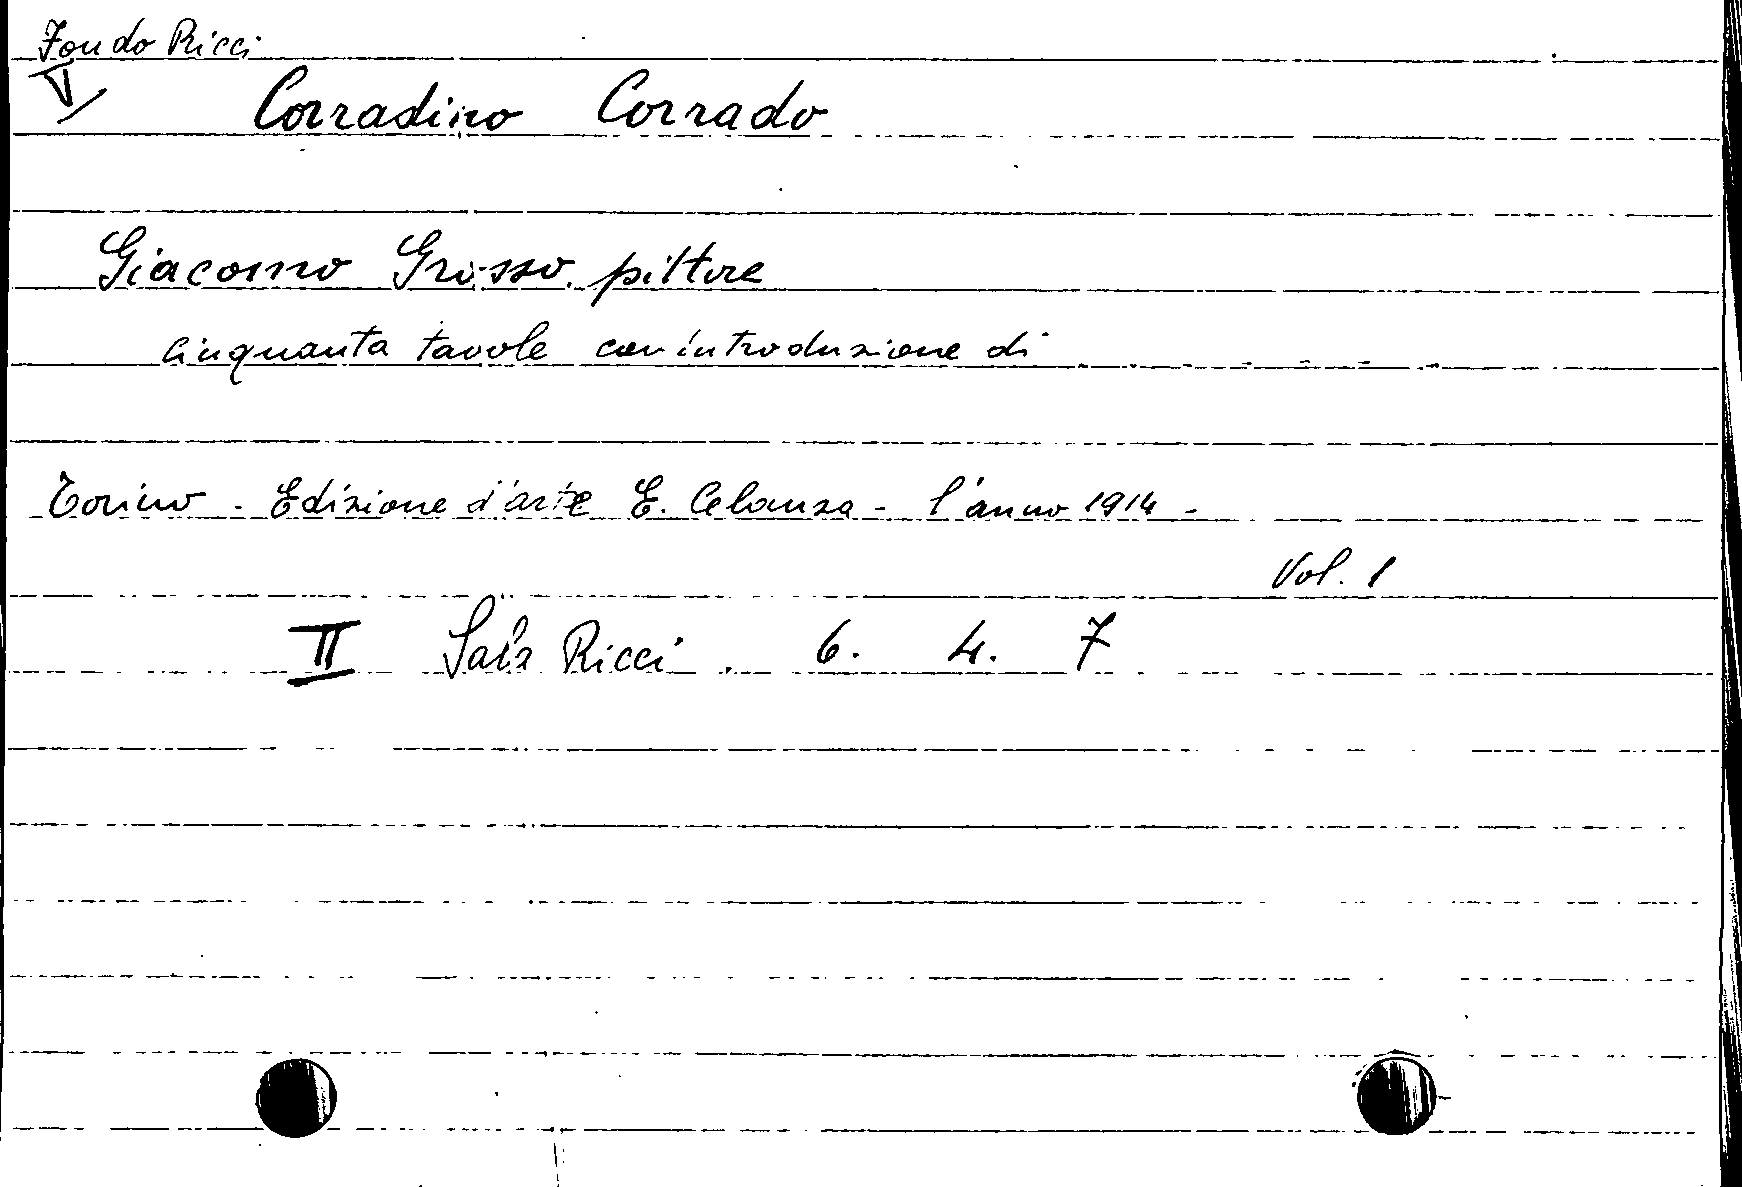 Fondo Ricci
V/
Corradino Corrado
Giacomo Grosso. pittore
cinquanta tavole con introduzione di - - - - -
Torino - Edizione d'arte E. Celanza - l'anno 1914 -
Vol. 1
II Sala Ricci . 6. 4. 7